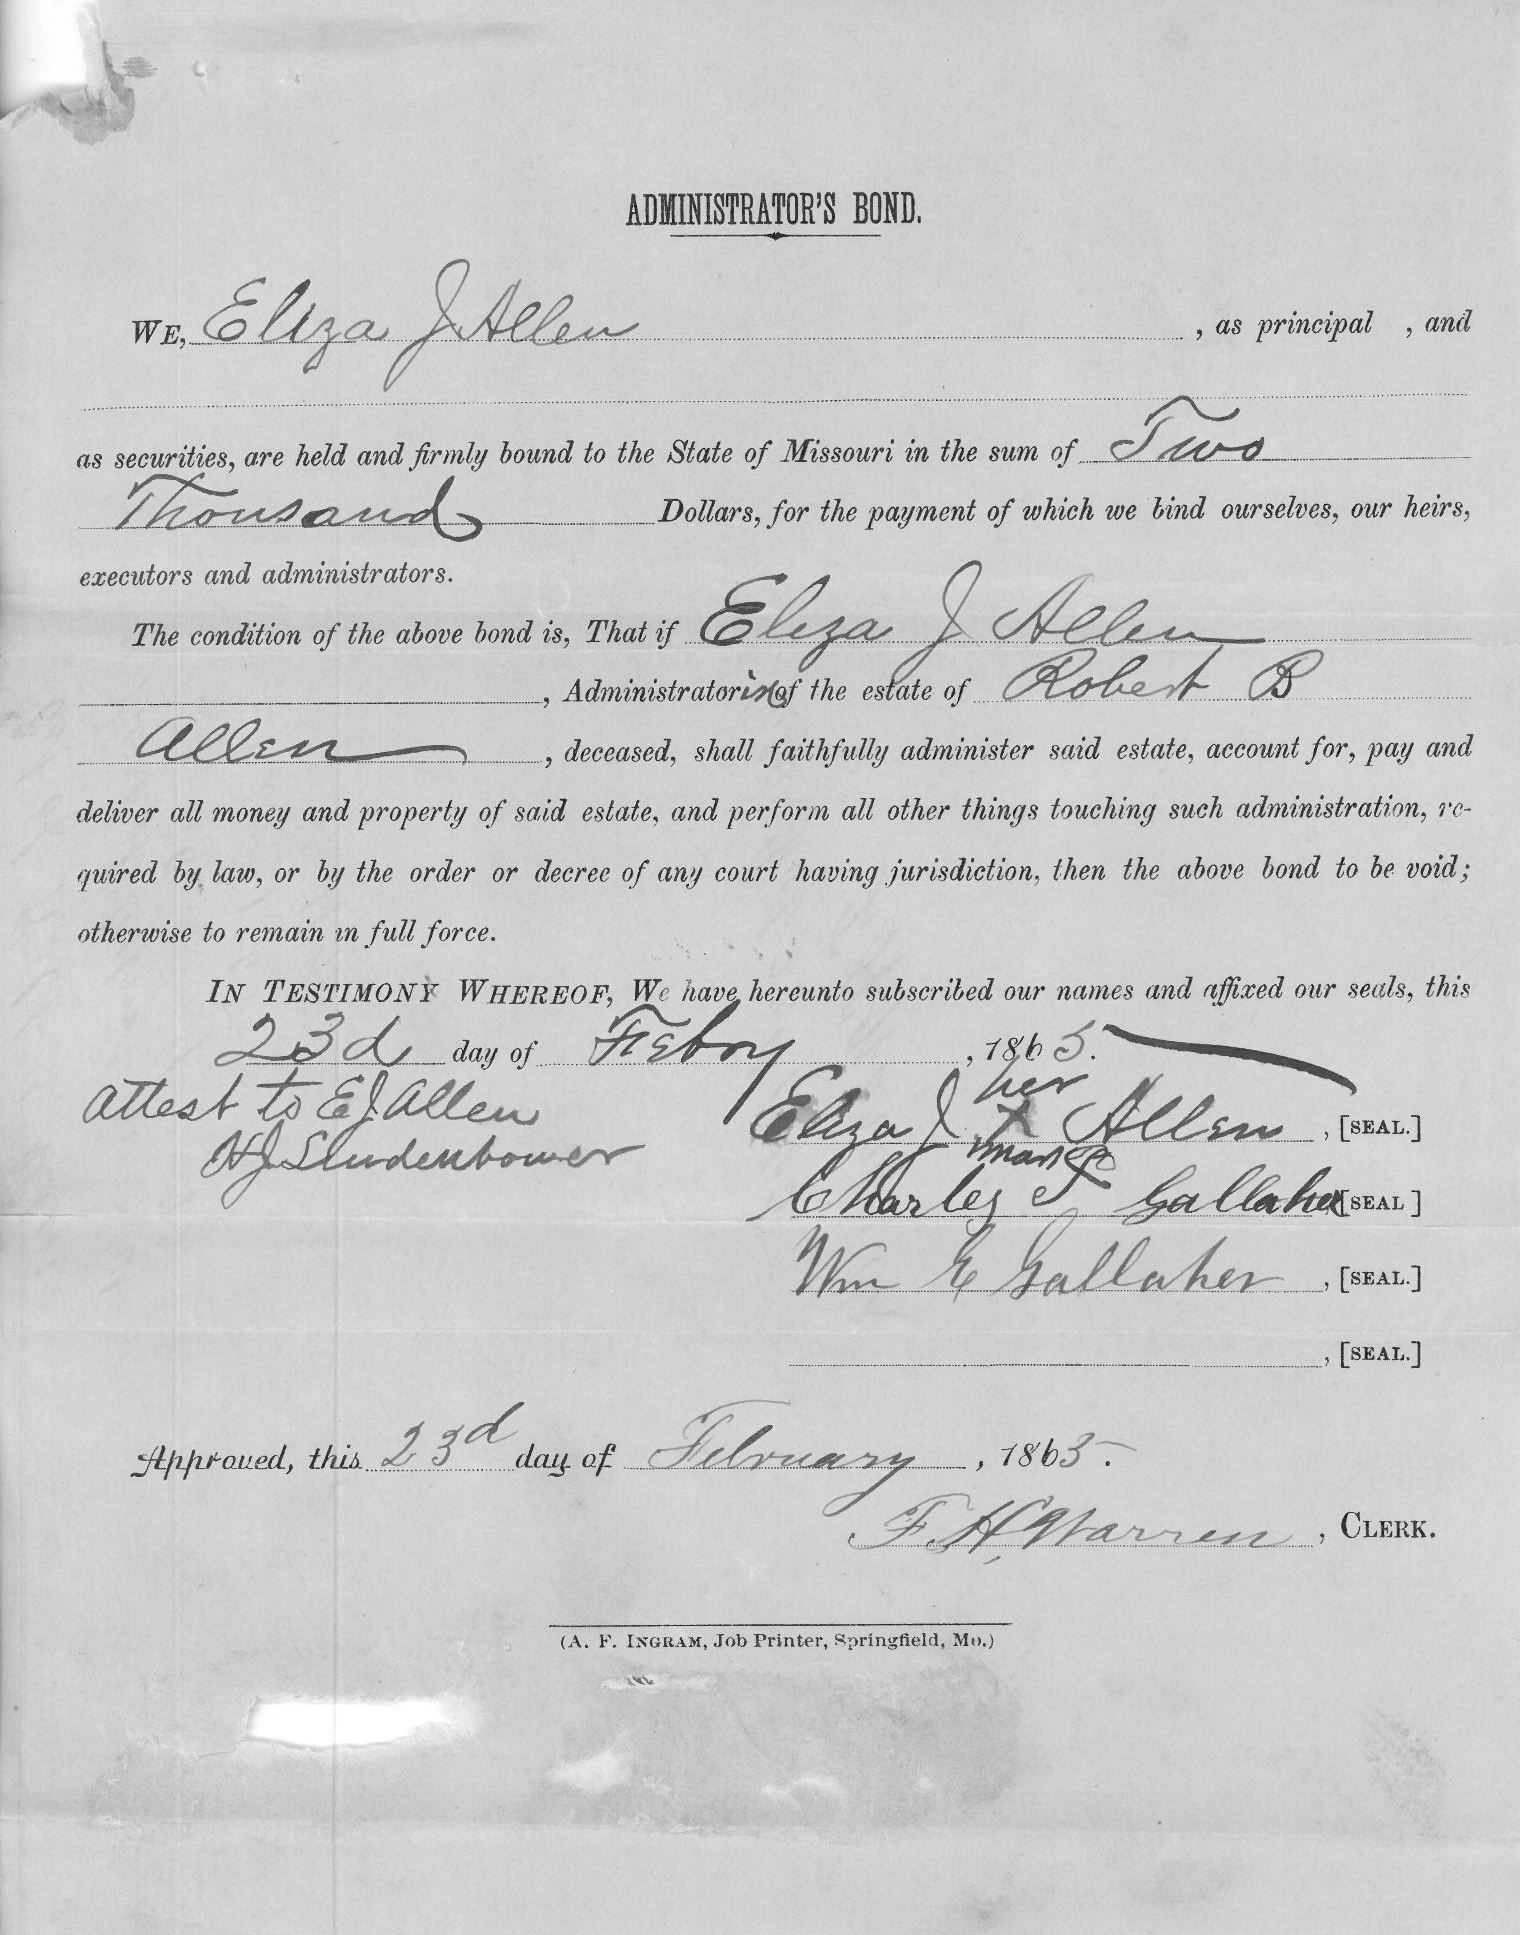 ADMINISTRATOR'S BOND.
WE, Eliza J Allen , as principal , and
as securities, are held and firmly bound to the State of Missouri in the sum of Two
Thousand Dollars, for the payment of which we bind ourselves, our heirs,
executors and administrators.
The condition of the above bond is, That if Eliza J Allen
, Administratorix of the estate of Robert B
Allen , deceased, shall faithfully administer said estate, account for, pay and
deliver all money and property of said estate, and perform all other things touching such administration, re-
quired by law, or by the order or decree of any court having jurisdiction, then the above bond to be void;
otherwise to remain in full force.
IN TESTIMONY WHEREOF, We have hereunto subscribed our names and affixed our seals, this
23d day of Febry , 1865.
her
attest to EJ Allen Eliza J X Allen , [SEAL.]
mark
HJ Lindenbower Charles S Gallaher [SEAL ]
Wm E Gallaher , [SEAL.]
, [SEAL.]
Approved, this 23d day of February , 1865.
F. H. Warren , CLERK.
(A. F. INGRAM, Job Printer, Springfield, Mo.)